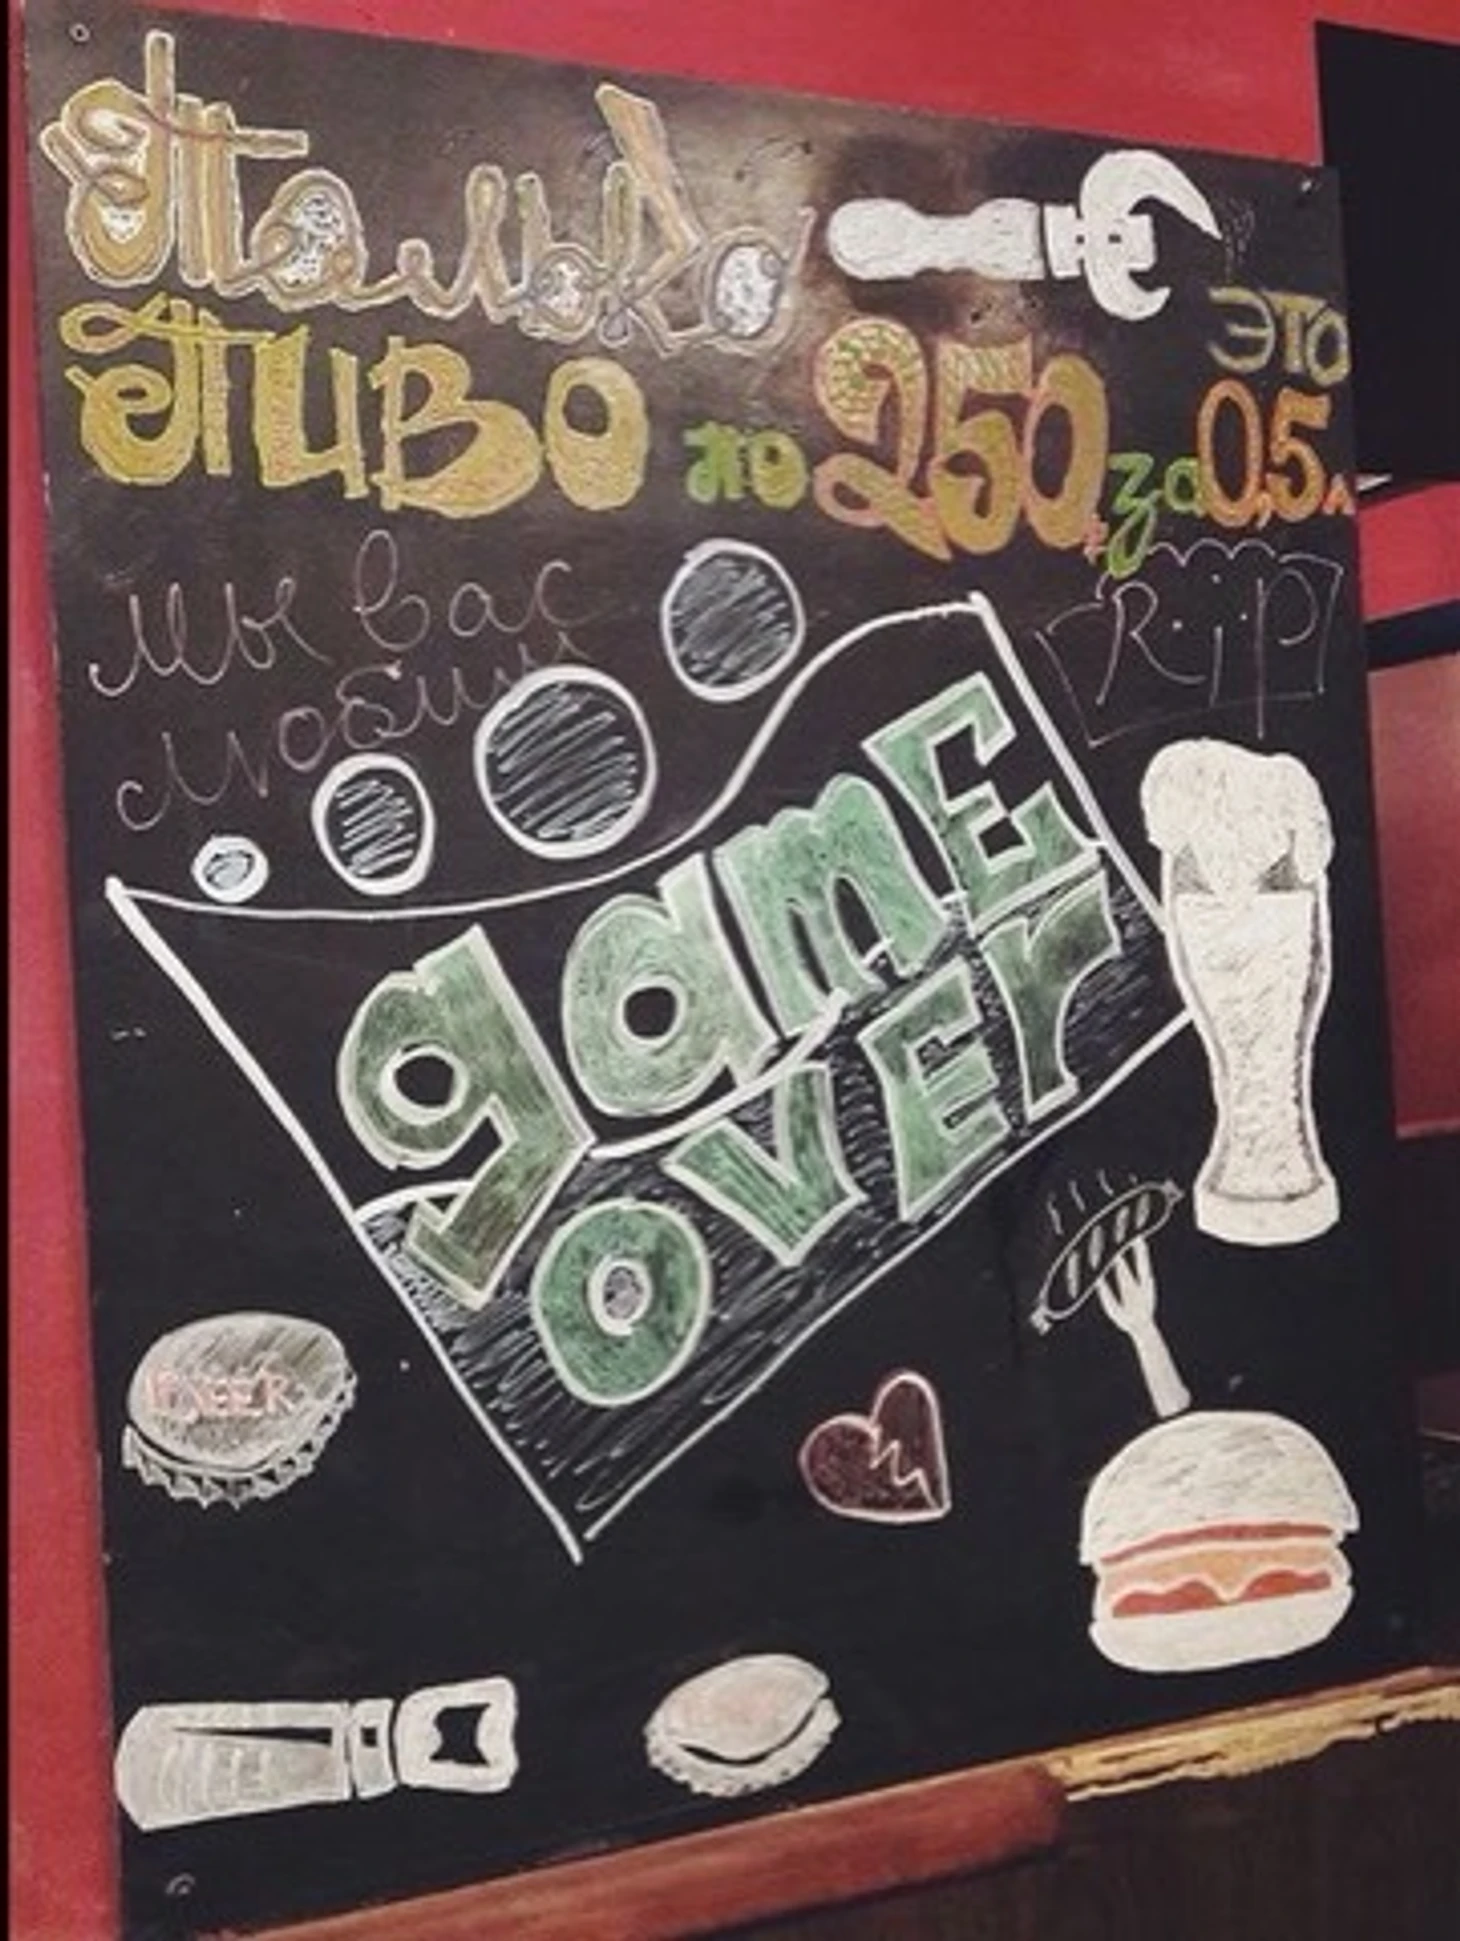 Только
это
Пиво по 250р за 0,5л
мы вас
любим
R.i.p
game
over
BEER